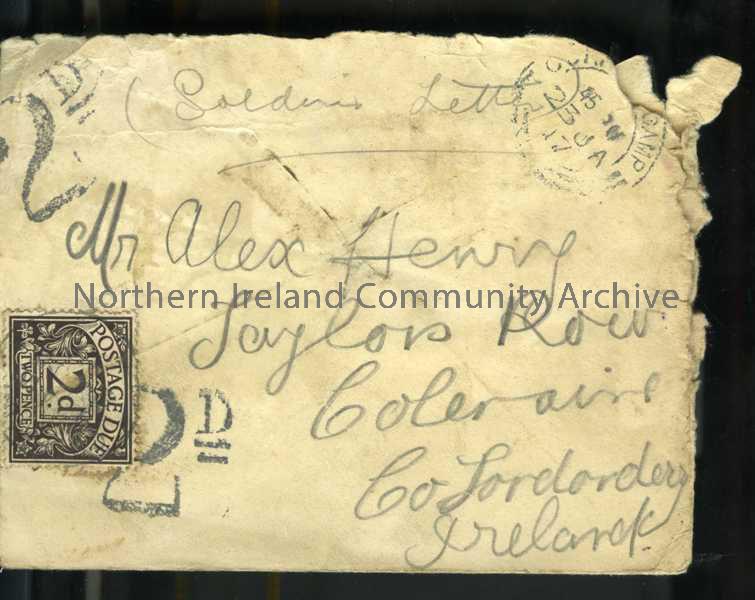 2D
(Soldiers Letter
CAMP
25 JA
17
Mr Alex Henry
Northern Ireland Community Archive
Taylors Row
POSTAGE DUE
2d
TWO PENCE
2D
Coleraine
Co Londonderry
Ireland